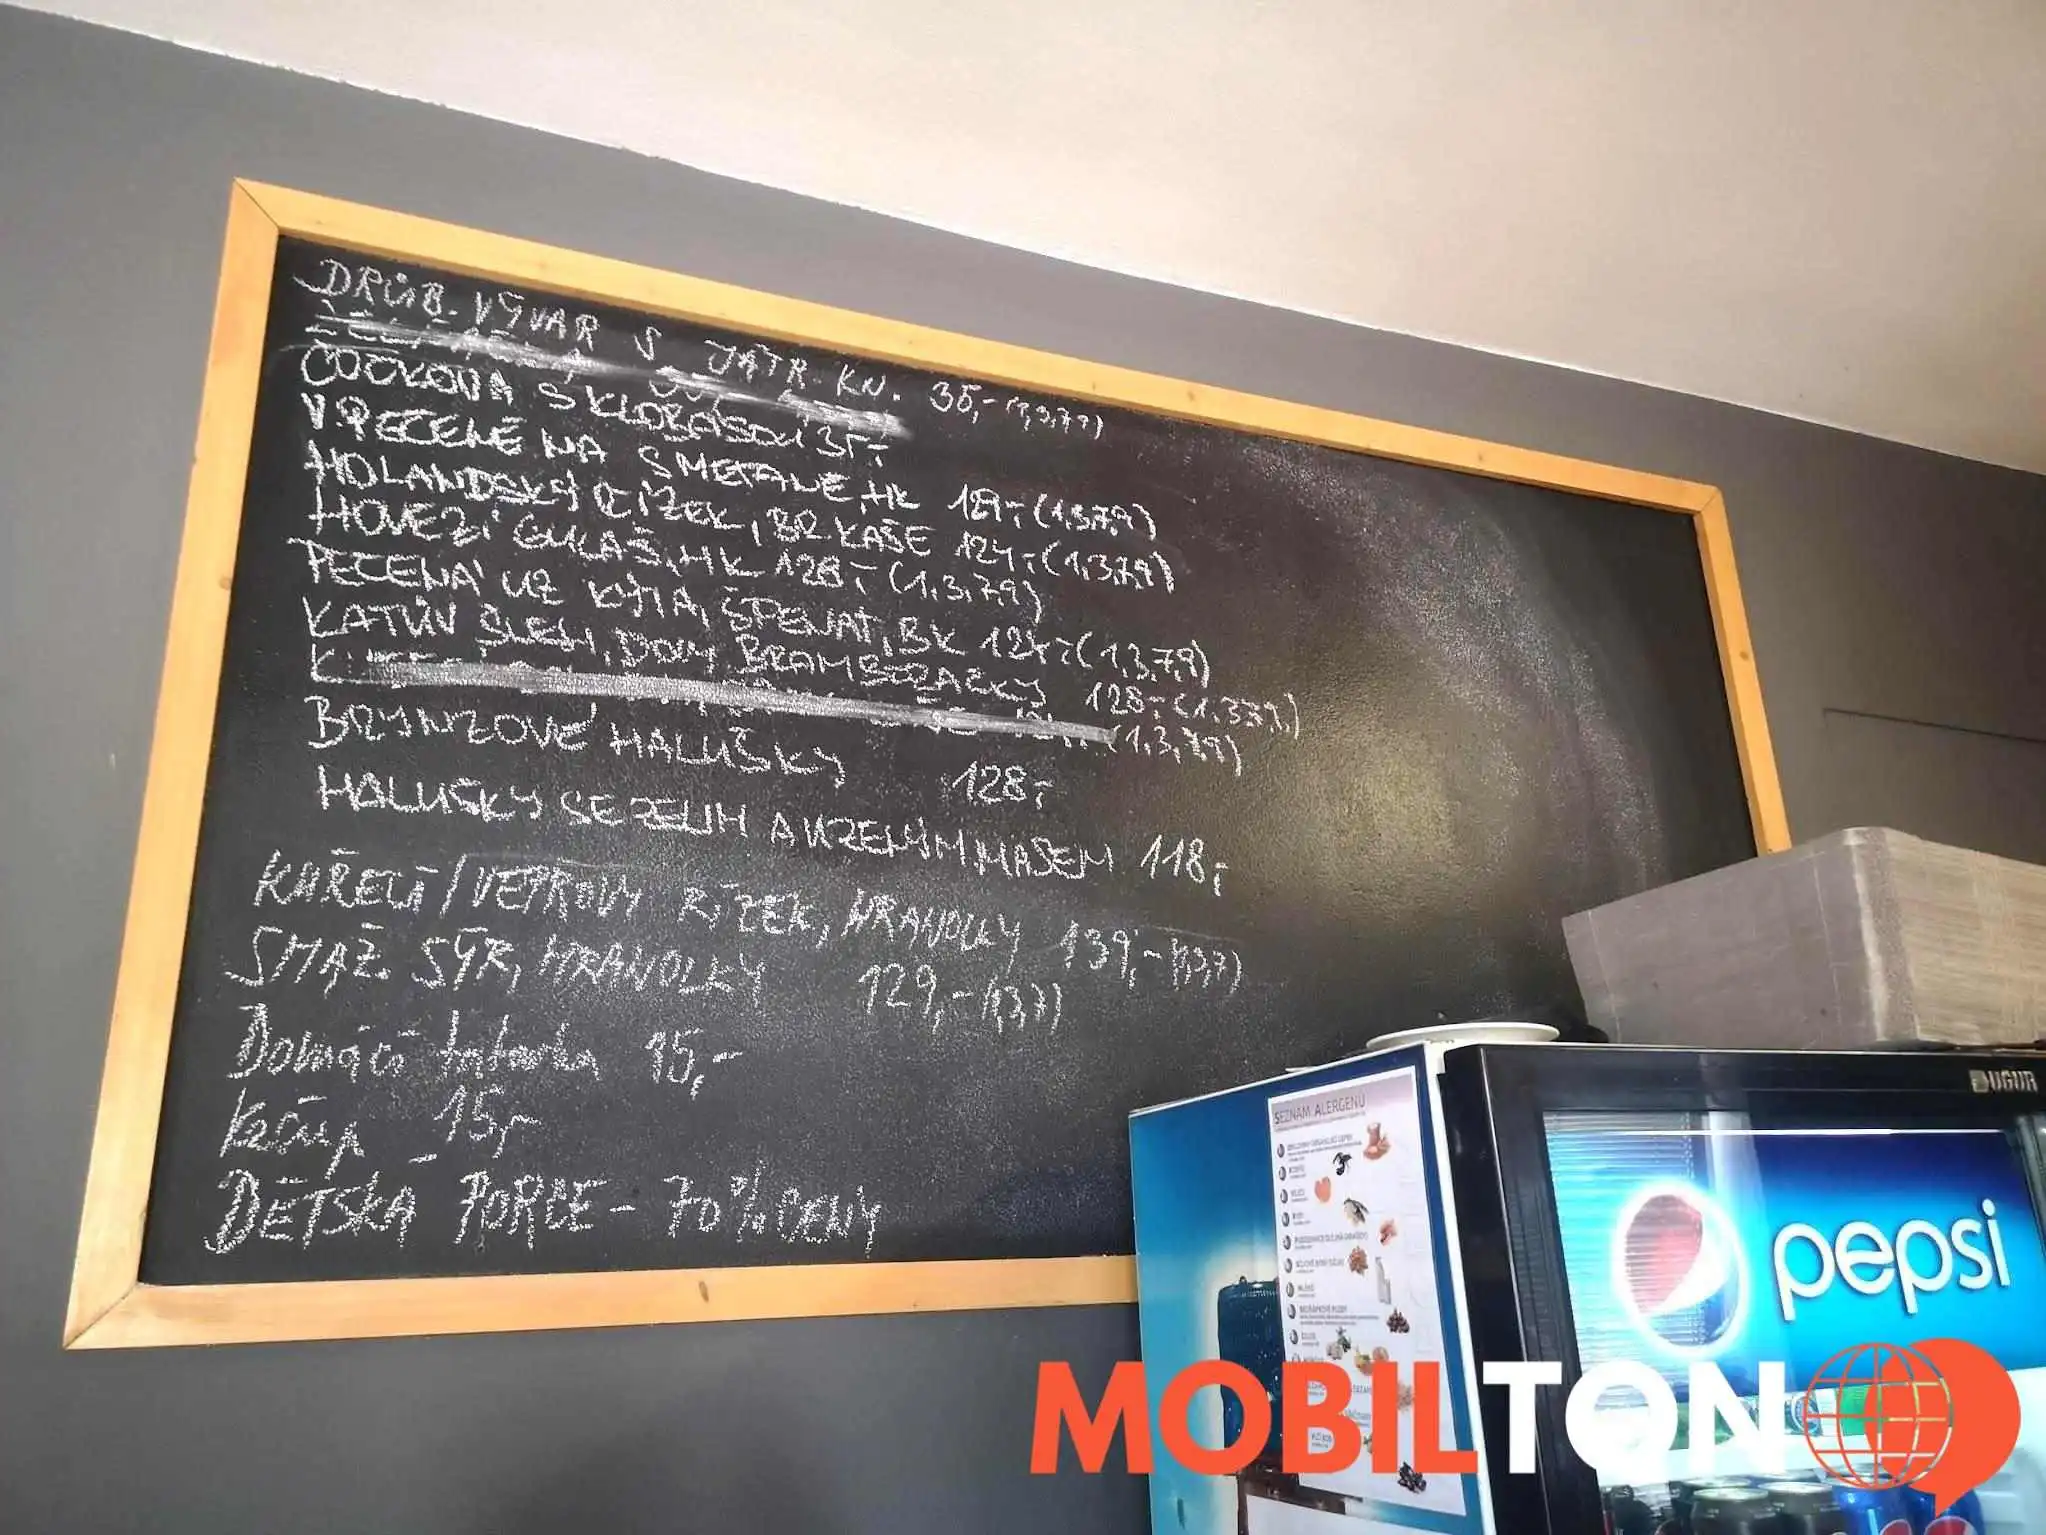 DRŮB. VÝVAR S JÁTR. KN. 35,- (1,3,7,9)
ČOČKOVÁ S KLOBÁSOU 35,-
V. PEČENĚ NA SMETANĚ, HK 129,- (1,3,7,9)
HOLANDSKÝ ŘÍZEK, BR KAŠE 124,- (1,3,7,9)
HOVĚZÍ GULÁŠ, HK 128,- (1,3,7,9)
PEČENÁ UZ KÝTA, ŠPENÁT, BK 124,- (1,3,7,9)
KATŮV ŠLEH, DOM. BRAMBORÁČKY 128,- (1,3,7,9)
(1,3,7,9)
BRYNZOVÉ HALUŠKY 128,-
HALUŠKY SE ZELÍM A UZENÝM MASEM 118,-
KUŘECÍ/VEPŘOVÝ ŘÍZEK, HRANOLKY 139,- (1,3,7)
SMAŽ. SÝR, HRANOLKY 129,- (1,3,7)
Domácí tatarka 15,-
Kečup 15,-
DĚTSKÁ PORCE - 70% CENY
UGUR
SEZNAM ALERGENŮ
pepsi
MOBILTON